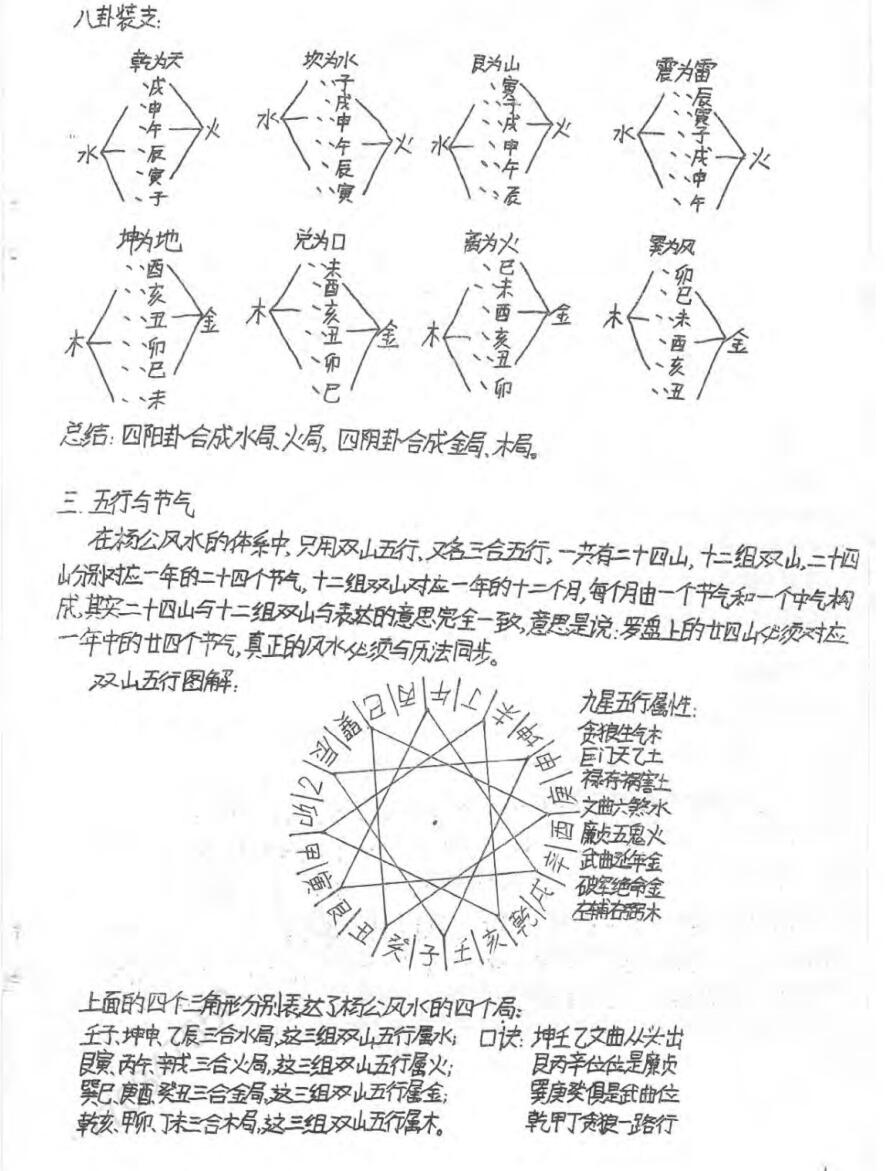 八卦装支:
乾为天 坎为水 艮为山 震为雷
水 戌申午辰寅子 火
水 子戌申午辰寅 火
水 寅子戌申午辰 火
水 辰寅子戌申午 火
坤为地 兑为口 离为火 巽为风
木 酉亥丑卯巳未 金
木 未酉亥丑卯巳 金
木 巳未酉亥丑卯 金
木 卯巳未酉亥丑 金
总结:四阳卦合成水局、火局,四阴卦合成金局、木局。
三. 五行与节气
在杨公风水的体系中,只用双山五行,又名三合五行,一共有二十四山,十二组双山,二十四
山分别对应一年的二十四个节气,十二组双山对应一年的十二个月,每个月由一个节气和一个中气构
成,其实二十四山与十二组双山与表达的意思完全一致,意思是说:罗盘上的廿四山必须对应
一年中的廿四个节气,真正的风水必须与历法同步。
双山五行图解:
午丁未坤申庚酉辛戌乾亥壬子癸丑艮寅甲卯乙辰巽巳丙
九星五行属性:
贪狼生气木
巨门天乙土
禄存祸害土
文曲六煞水
廉贞五鬼火
武曲延年金
破军绝命金
左辅右弼木
上面的四个三角形分别表达了杨公风水的四个局:
壬子、坤申、乙辰三合水局,这三组双山五行属水; 口诀:坤壬乙文曲从头出
艮寅、丙午、辛戌三合火局,这三组双山五行属火; 艮丙辛位位是廉贞
巽巳、庚酉、癸丑三合金局,这三组双山五行属金; 巽庚癸俱是武曲位
乾亥、甲卯、丁未三合木局,这三组双山五行属木。 乾甲丁贪狼一路行